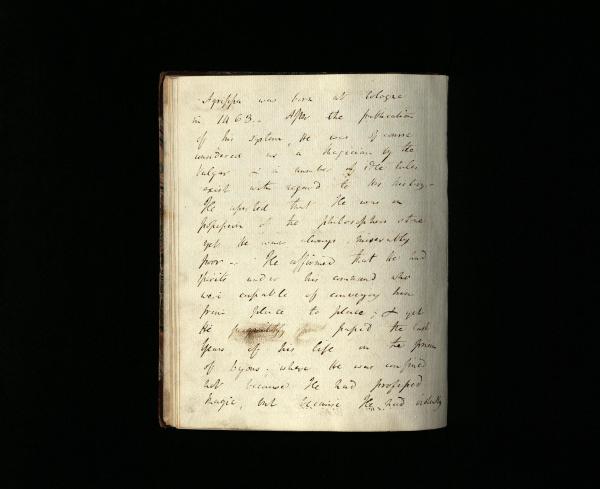 Agrippa was born at Cologne
in 1463.. After the publication
of his system, He was of course
considered as a Magician by the
vulgar & a number of idle tales
exist with regard to his history –
He asserted that He was in
possession of the philosophers stone
yet He was always miserably
poor – He affirmed that He had
spirits under his command who
were capable of conveying him
from place to place; & yet
He passed the last
Years of his life in the prison
of Lyons; where He was confined
not because He had professed
Magic, but because He had